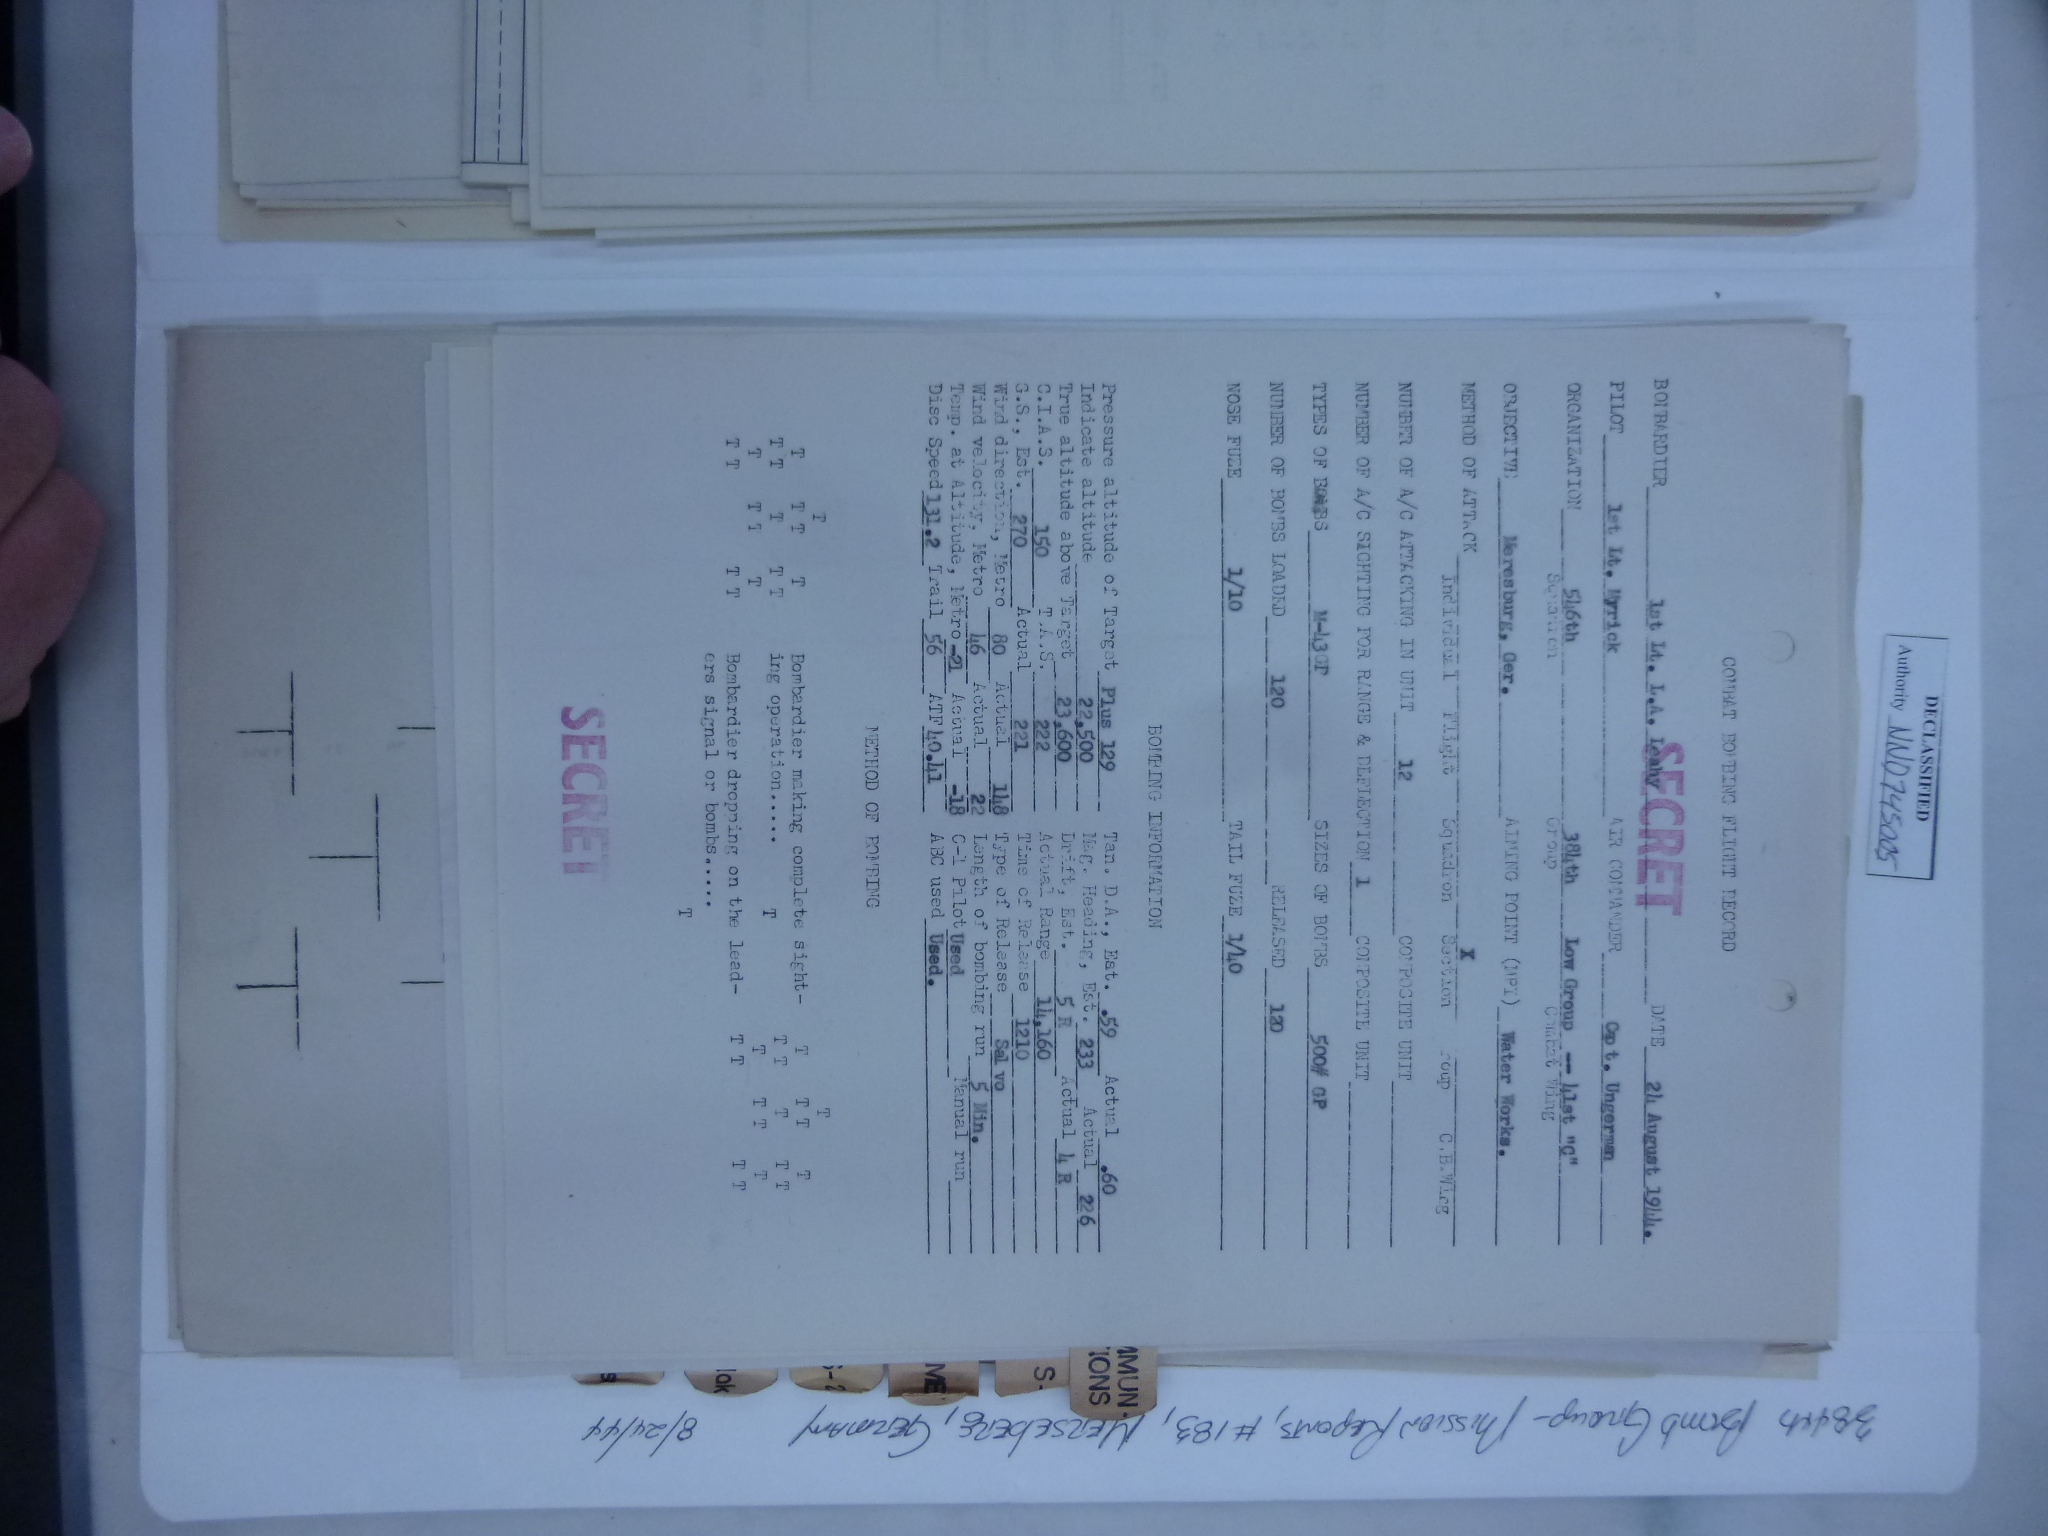 DECLASSIFIED
Authority NND745005
COMBAT BOMBING FLIGHT RECORD
SECRET
BOMBARDIER 1st Lt. L.A. Leahy DATE 24 August 1944.
PILOT 1st Lt. Myrick AIR COMMANDER Cpt. Ungerman
ORGANIZATION 546th 384th Low Group -- 41st "C"
Squadron Group Combat Wing
OBJECTIVE Meresburg, Ger. AIMING POINT (MPI) Water Works.
METHOD OF ATTACK X
Individual Flight Squadron Section Group C.B.Wing
NUMBER OF A/C ATTACKING IN UNIT 12 COMPOSITE UNIT
NUMBER OF A/C SIGHTING FOR RANGE & DEFLECTION 1 COMPOSITE UNIT
TYPES OF BOMBS M-43GP SIZES OF BOMBS 500# GP
NUMBER OF BOMBS LOADED 120 RELEASED 120
NOSE FUZE 1/10 TAIL FUZE 1/40
BOMPING INFORMATION
Pressure altitude of Target Plus 129 Tan. D.A., Est. .59 Actual .60
Indicate altitude 22,500 Mag. Heading, Est. 233 Actual 226
True altitude above Target 23,600 Drift, Est. 5 R Actual 4 R
C.I.A.S. 150 T.A.S. 222 Actual Range 14,160
G.S., Est. 270 Actual 221 Time of Release 1210
Wind direction, Metro 80 Actual 148 Type of Release Salvo
Wind velocity, Metro 46 Actual 22 Length of bombing run 5 Min.
Temp. at Altitude, Metro -21 Actual -18 C-1 Pilot Used Manual run
Disc Speed 131.2 Trail 56 ATF 40.41 ABC used Used.
METHOD OF BOMBING
T T
T T T T T T T T
T T T T T T T T
T T T T T T
T T T T T T T T T T T T
Bombardier making complete sight-
ing operation..... T
Bombardier dropping on the lead-
ers signal or bombs..... T
SECRET
MMUN.
IONS
S-
ME
S-2
lak
s
384th Bomb Group - Mission Reports, #183, Merseberg, Germany
8/24/44